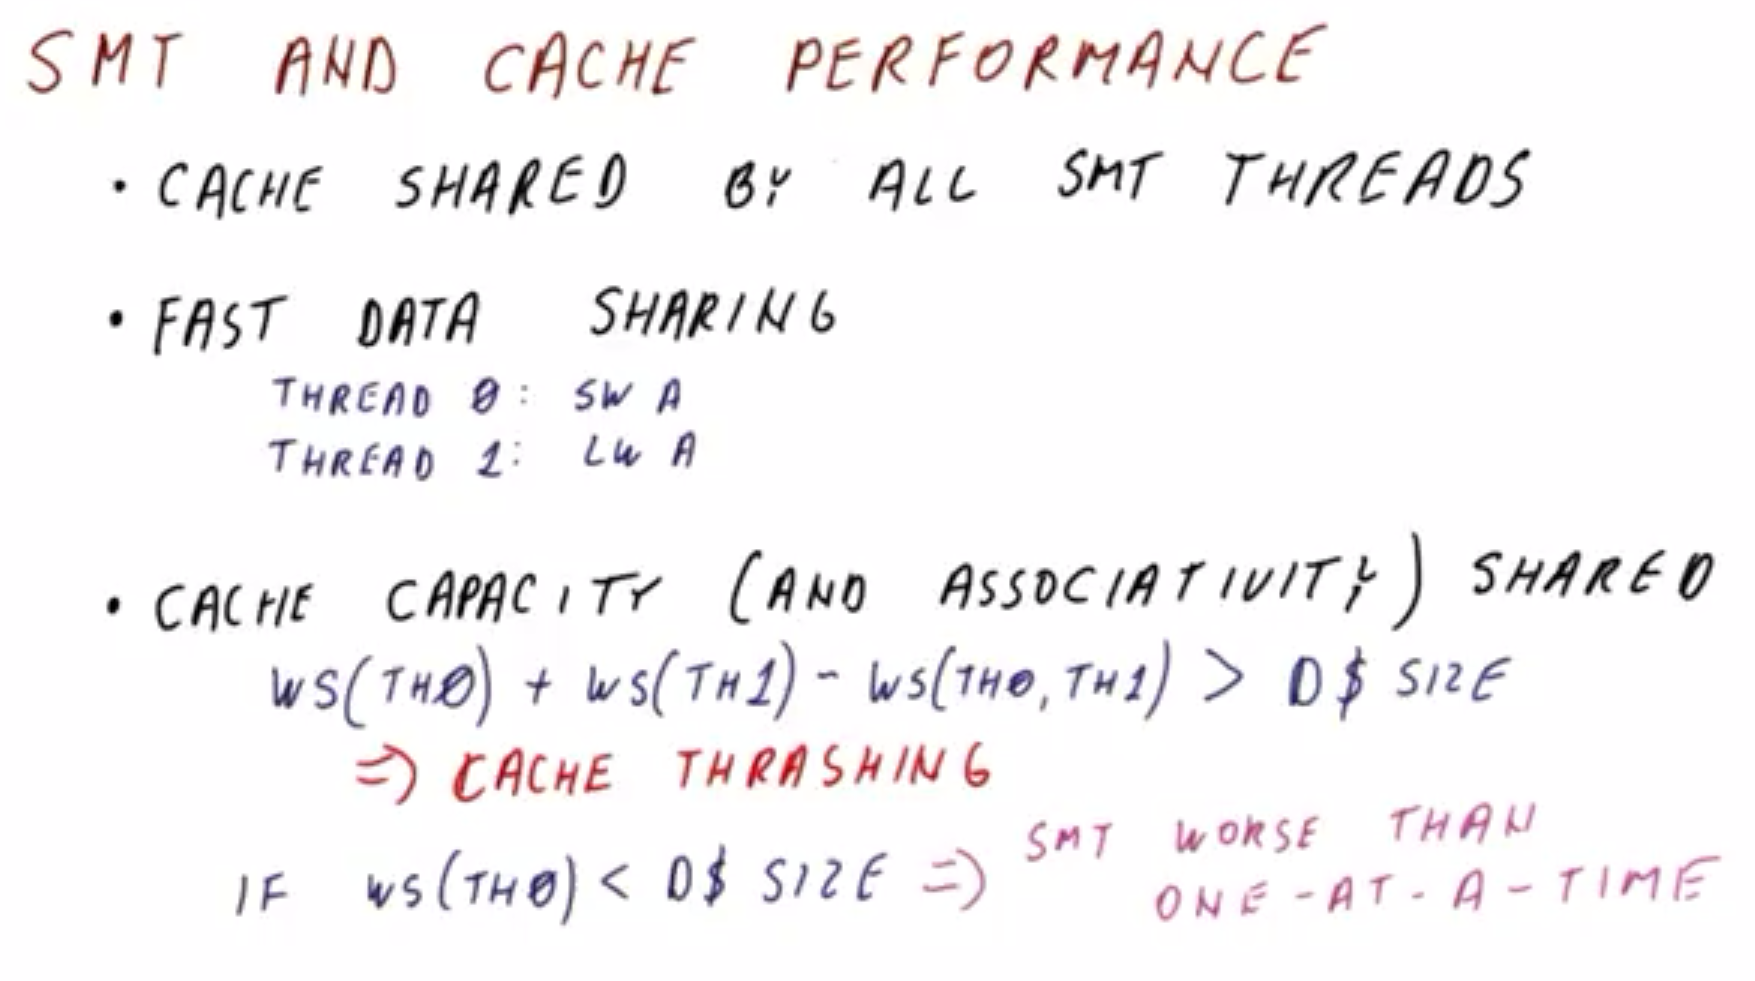 SMT AND CACHE PERFORMANCE
• CACHE SHARED BY ALL SMT THREADS
• FAST DATA SHARING
THREAD 0: SW A
THREAD 1: LW A
• CACHE CAPACITY (AND ASSOCIATIVITY) SHARED
WS(TH0) + WS(TH1) - WS(TH0, TH1) > D$ SIZE
=> CACHE THRASHING
IF WS(TH0) < D$ SIZE => SMT WORSE THAN
ONE-AT-A-TIME